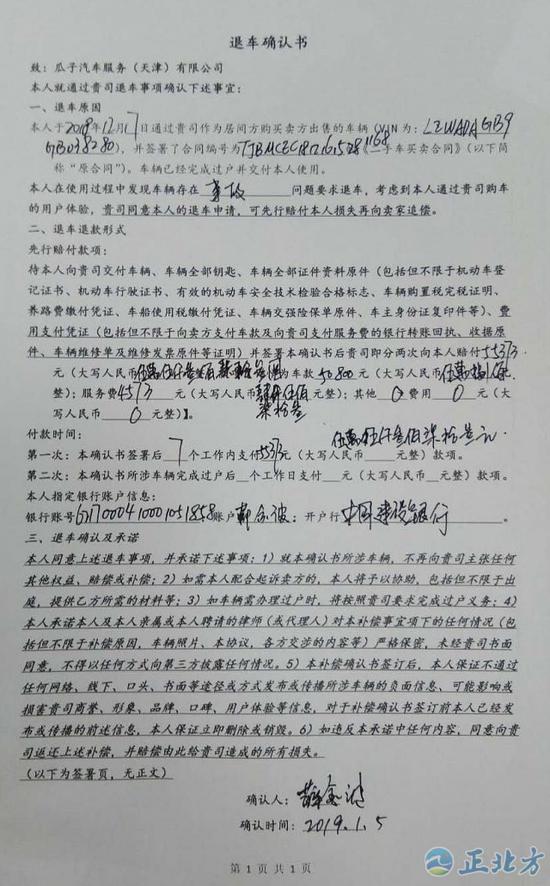 退车确认书
致：瓜子汽车服务（天津）有限公司
本人就通过贵司退车事项确认下述事宜：
一、退车原因
本人于2018年12月17日通过贵司作为居间方购买卖方出售的车辆（VIN为：LZWADAGB9
GB038280），并签署了合同编号为《二手车买卖合同》（以下简
称“原合同”）。车辆已经完成过户并交付本人使用。
本人在使用过程中发现车辆存在 事故 问题要求退车，考虑到本人通过贵司购车
的用户体验，贵司同意本人的退车申请，可先行赔付本人损失再向卖家追偿。
二、退车退款形式
先行赔付款项：
待本人向贵司交付车辆、车辆全部钥匙、车辆全部证件资料原件（包括但不限于机动车登
记证书、机动车行驶证书、有效的机动车安全技术检验合格标志、车辆购置税完税证明、
养路费缴付凭证、车船使用税缴付凭证、车辆交强险保单原件、车主身份证复印件等）、费
用支付凭证（包括但不限于向卖方支付车款及向贵司支付服务费的银行转账回执、收据原
件、车辆维修单及维修发票原件等证明）并签署本确认书后贵司即分两次向本人赔付55373
元（大写人民币 为车款50800元（大写人民币
整）；服务费4573元（大写人民币 整）；其他 0 费用 0 元（大
写人民币 0 元整）】。
付款时间： 伍萬伍仟叁佰柒拾叁元
第一次：本确认书签署后 7 个工作内支付55373元（大写人民币 元整）款项。
第二次：本确认书所涉车辆完成过户后 个工作日支付 元（大写人民币 元整）款项。
本人指定银行账户信息：
银行账号6217000410001051858账户 ；开户行 中国建设银行 。
三、退车确认及承诺
本人同意上述退车事项，并承诺下述事项：1）就本确认书所涉车辆，不再向贵司主张任何
其他权益、赔偿或补偿；2）如需本人配合起诉卖方的，本人将予以协助，包括但不限于出
庭，提供乙方所需的材料等；3）如车辆需办理过户时，将按照贵司要求完成过户义务；4）
本人承诺本人及本人亲属或本人聘请的律师（或代理人）对本补偿事宜项下的任何情况（包
括但不限于补偿原因，车辆照片、本协议，各方交涉的内容等）严格保密，未经贵司书面
同意，不得以任何方式向第三方披露任何情况。5）本补偿确认书签订后，本人保证不通过
任何网络、线下、口头、书面等途径或方式发布或传播所涉车辆的负面信息、可能影响或
损害贵司商誉、形象、品牌、口碑、用户体验等信息，对于补偿确认书签订前本人已经发
布或传播的前述信息，本人保证立即删除或销毁。6）如违反本承诺中任何内容，同意向贵
司返还上述补偿，并赔偿由此给贵司造成的所有损失。
（以下为签署页，无正文）
确认人：
确认时间：2019.1.5
第 1 页 共 1 页
正北方